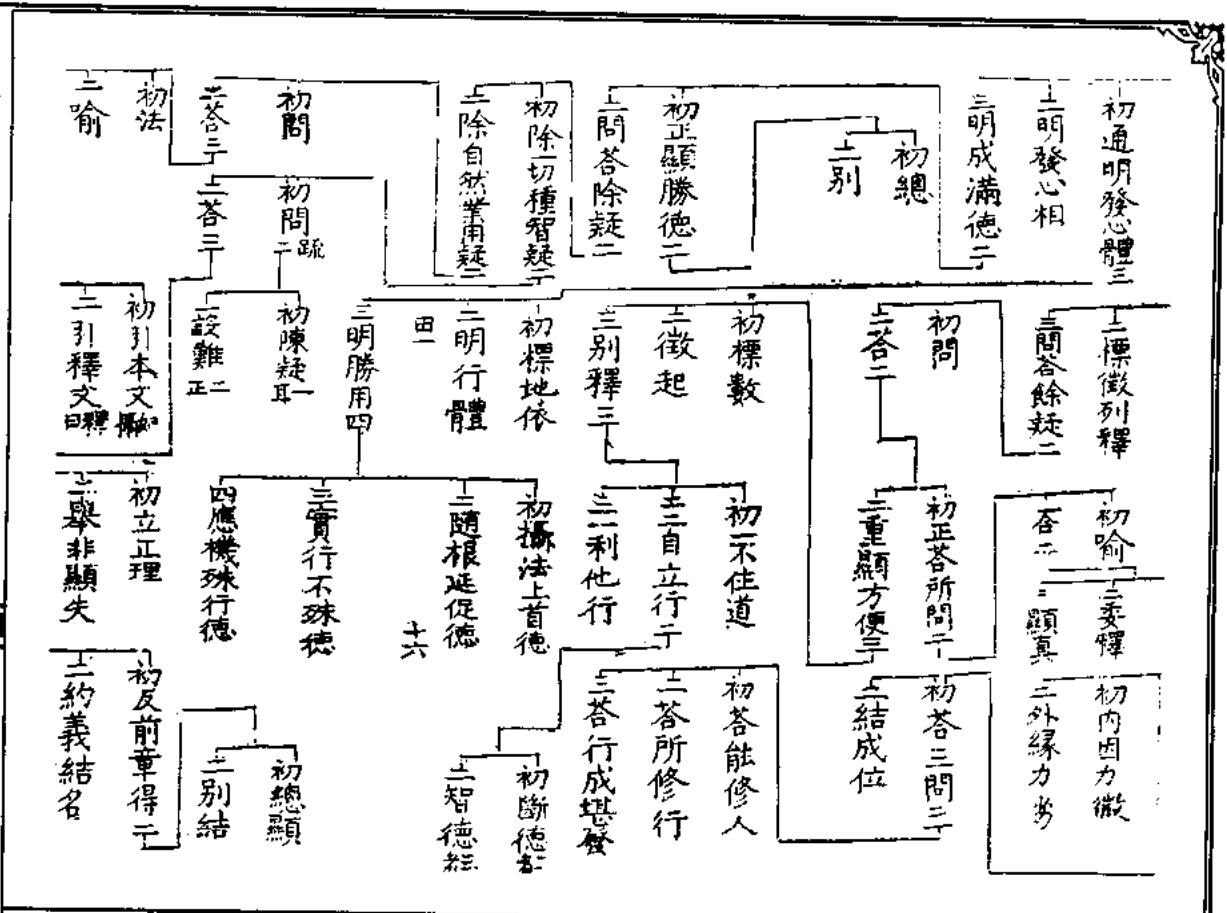 初通明發心體三
二明發心相
三明成滿德二
初總
二別
初正顯勝德二
二問答除疑二
初除一切種智疑二
二除自然業用疑二
初問
二答三
初法
二喻
初問 疏二
二答三
二標徵列釋
三問答餘疑二
初問
二答二
初標數
二徵起
三別釋三
初標地依
二明行體
三明勝用四
初陳疑
二設難
初引本文
二引釋文
初喻
二委釋
二顯真
初正答所問二
二重顯方便三
初不住道
二自立行二
三利他行
初攝法上首德
二隨根延促德
三實行不殊德
四應機殊行德
十六
初立正理
二舉非顯失
初內因力微
二外緣力劣
初答三問二
二結成位
初答能修人
二答所修行
三答行成堪發
初斷德
二智德
初總顯
二別結
初反前章得二
二約義結名